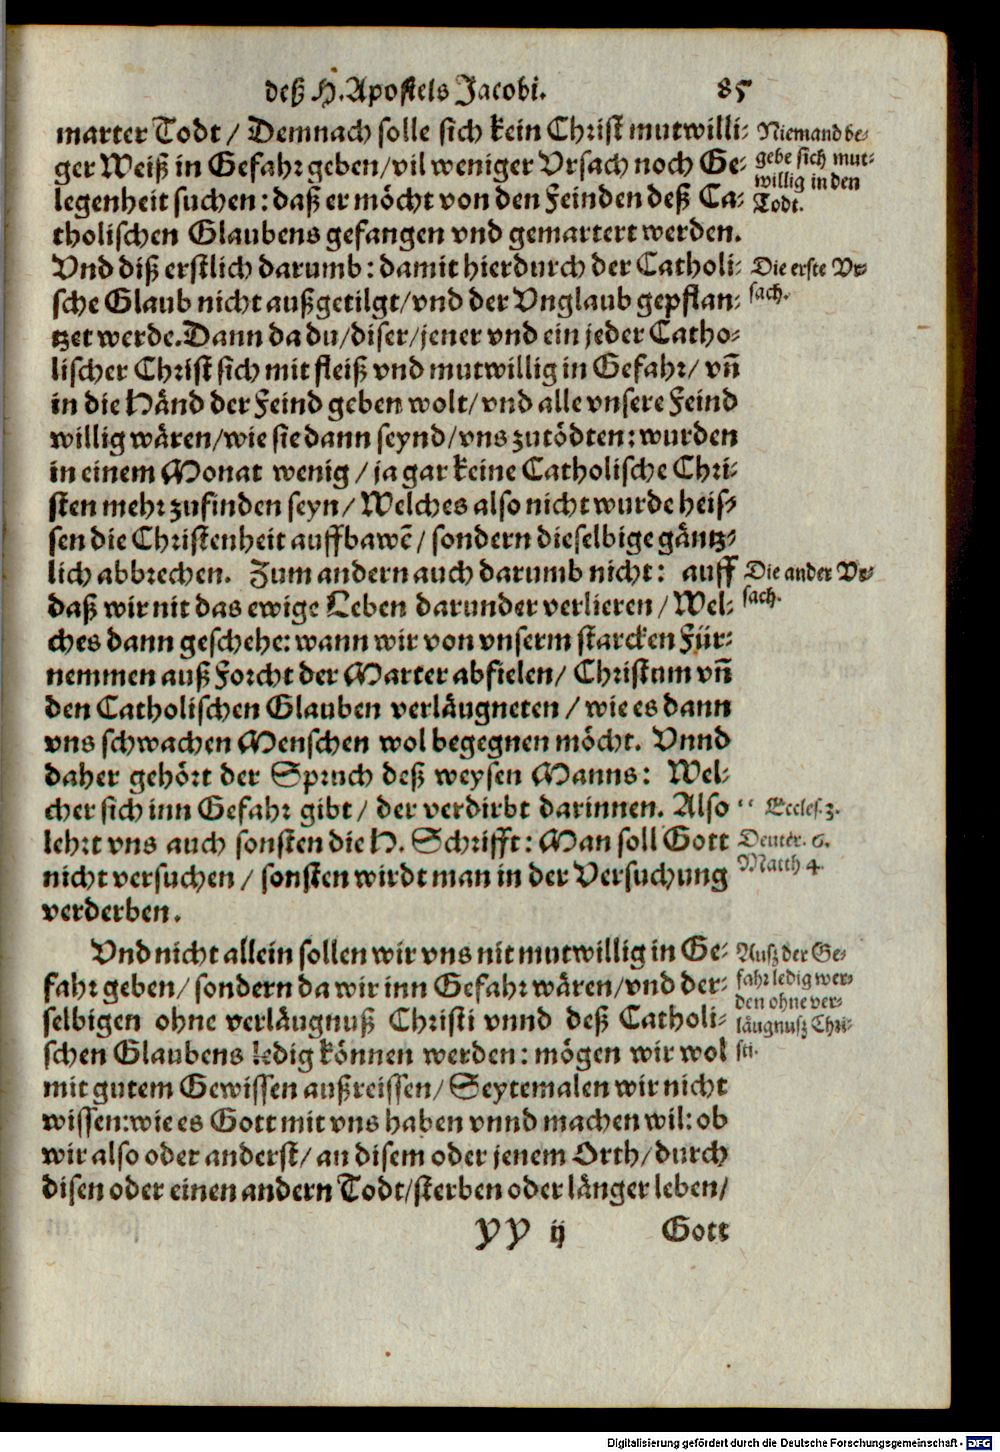 deß H. Apostels Jacobi. 85
marter Todt / Demnach solle sich kein Christ mutwilli-
ger Weiß in Gefahr geben/ vil weniger Vrsach noch Ge-
legenheit suchen: daß er möcht von den Feinden deß Ca-
tholischen Glaubens gefangen vnd gemartert werden.
Vnd diß erstlich darumb: damit hierdurch der Catholi-
sche Glaub nicht außgetilgt/ vnd der Vnglaub gepflan-
tzet werde. Dann da du/ diser/ jener vnd ein jeder Catho-
lischer Christ sich mit fleiß vnd mutwillig in Gefahr/ vñ
in die Händ der Feind geben wolt/ vnd alle vnsere Feind
willig wären/ wie sie dann seynd/ vns zutödten: wurden
in einem Monat wenig / ja gar keine Catholische Chri-
sten mehr zufinden seyn/ Welches also nicht wurde heis-
sen die Christenheit auffbawẽ/ sondern dieselbige gäntz-
lich abbrechen. Zum andern auch darumb nicht: auff
daß wir nit das ewige Leben darunder verlieren/ Wel-
ches dann geschehe: wann wir von vnserm starcken Für-
nemmen auß Forcht der Marter abfielen/ Christum vñ
den Catholischen Glauben verläugneten / wie es dann
vns schwachen Menschen wol begegnen möcht. Vnnd
daher gehört der Spruch deß weysen Manns: Wel-
cher sich inn Gefahr gibt/ der verdirbt darinnen. Also
lehrt vns auch sonsten die H. Schrifft: Man soll Gott
nicht versuchen / sonsten wirdt man in der Versuchung
verderben.
Vnd nicht allein sollen wir vns nit mutwillig in Ge-
fahr geben/ sondern da wir inn Gefahr wären/ vnd der-
selbigen ohne verläugnuß Christi vnnd deß Catholi-
schen Glaubens ledig können werden: mögen wir wol
mit gutem Gewissen außreissen/ Seytemalen wir nicht
wissen: wie es Gott mit vns haben vnnd machen wil: ob
wir also oder anderst/ an disem oder jenem Orth/ durch
disen oder einen andern Todt/ sterben oder länger leben/
YY ij Gott
Niemand be-
gebe sich mut-
willig in den
Todt.
Die erste Vr-
sach.
Die ander Vr-
sach.
“ Eccles. 3.
Deuter. 6.
Matth 4.
Ausz der Ge-
fahr ledig wer-
den ohne ver-
läugnusz Chri-
sti.
Digitalisierung gefördert durch die Deutsche Forschungsgemeinschaft - DFG